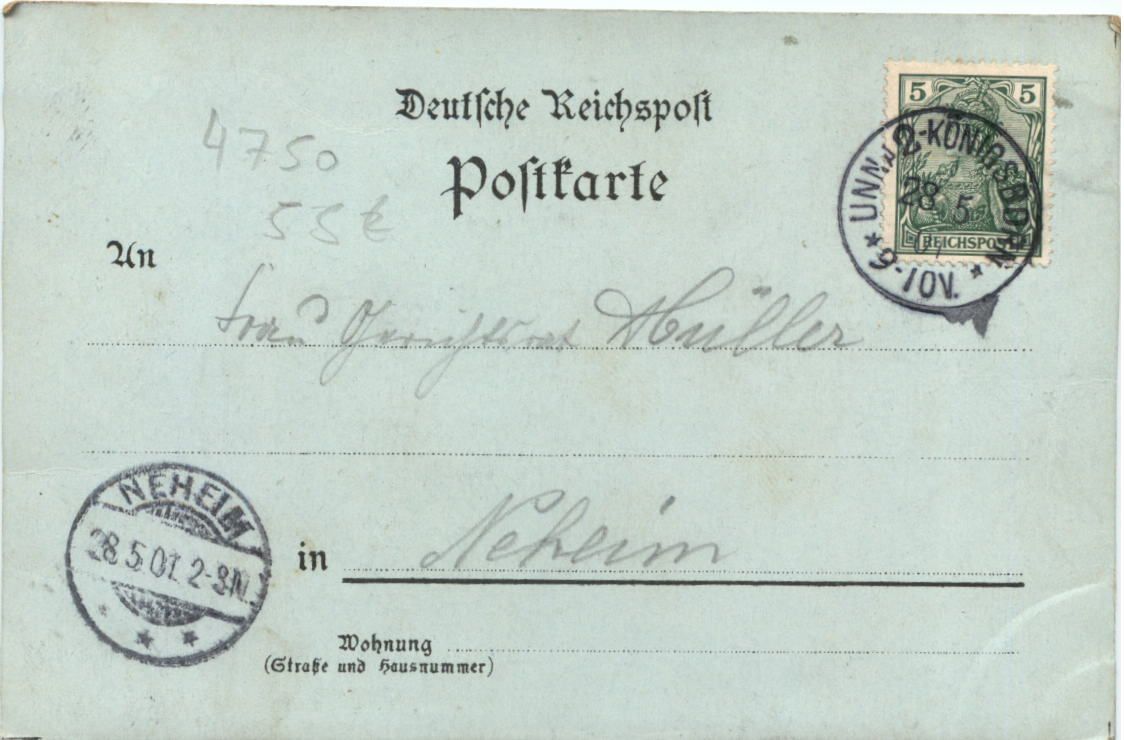 Deutsche Reichspost
Postkarte
4750
55 €
5 5
REICHSPOST
UNNA-KÖNIGSBORN
2
28 5
01
9-10V.
An
Frau Gerichtsrat Müller
in Neheim
NEHEIM
28.5.01. 2-3N.
Wohnung
(Straße und Hausnummer)